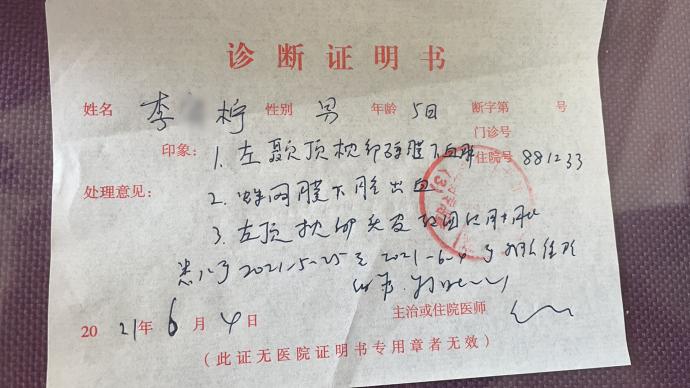 诊断证明书
姓名 李 柠 性别 男 年龄 5日 断字第 号
门诊号
印象: 1. 左颞顶枕部硬膜下血肿 住院号 881233
处理意见: 2. 蛛网膜下腔出血
3. 左顶枕部头皮血
患儿于2021-5-25至2021-6-4于我院住院
主治或住院医师
2021年6月4日
(此证无医院证明书专用章者无效)